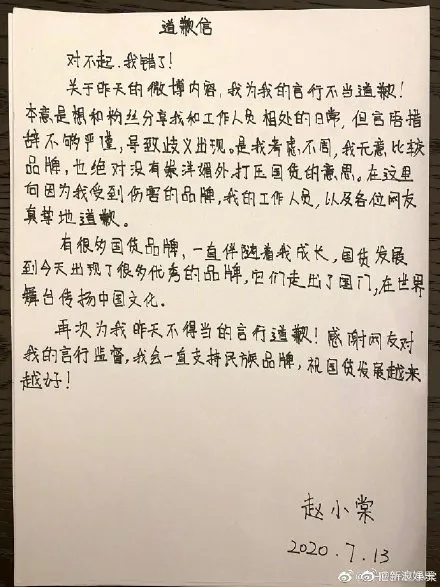 道歉信
对不起,我错了!
关于昨天的微博内容,我为我的言行不当道歉!
本意是想和粉丝分享我和工作人员相处的日常,但言语措
辞不够严谨,导致歧义出现。是我考虑不周,我无意比较
品牌,也绝对没有崇洋媚外,打压国货的意思。在这里
向因为我受到伤害的品牌,我的工作人员,以及各位网友
真挚地道歉。
有很多国货品牌,一直伴随着我成长,国货发展
到今天出现了很多优秀的品牌,它们走出了国门,在世界
舞台传扬中国文化。
再次为我昨天不得当的言行道歉!感谢网友对
我的言行监督,我会一直支持民族品牌,祝国货发展越来
越好!
赵小棠
2020.7.13
新浪娱乐